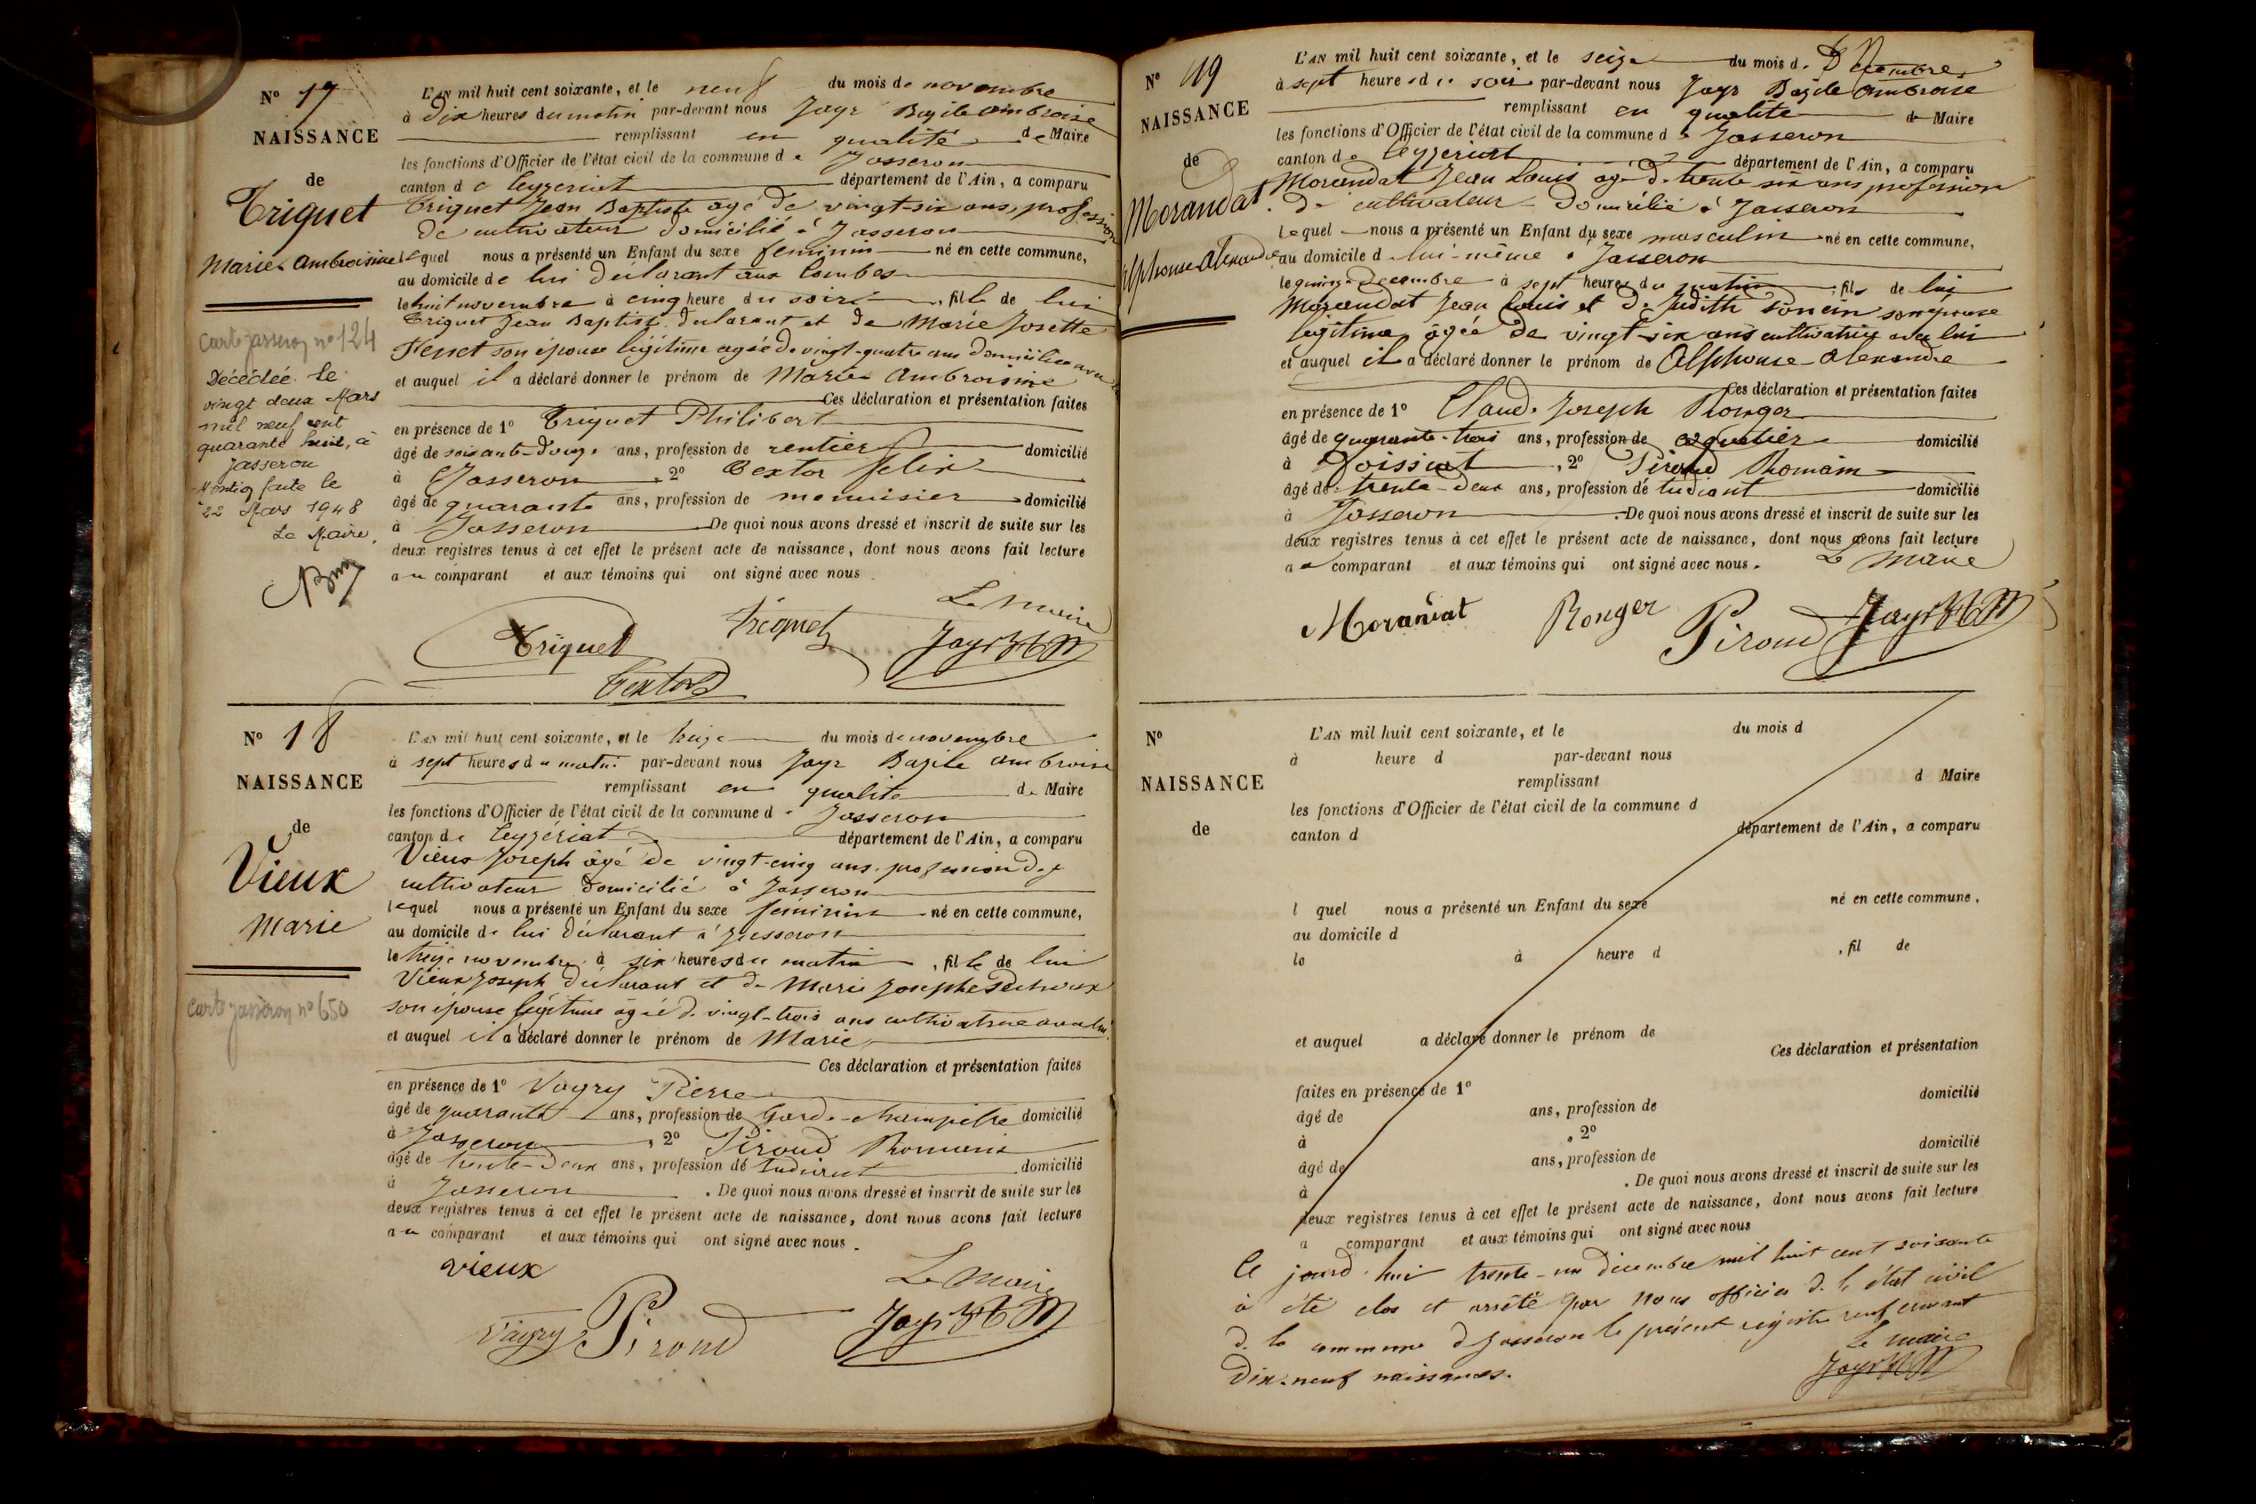 N° 17
NAISSANCE
de
Triquet
Marie Ambroisine
Carte Jasseron n° 124
Décédée le
vingt deux Mars
mil neuf cent
quarante huit, à
Jasseron
Mention faite le
22 Mars 1948
Le Maire,
L'AN mil huit cent soixante, et le neuf du mois de novembre
à Dix heures du matin par-devant nous Jayr Bazile Ambroise
remplissant en qualité de Maire
les fonctions d'Officier de l'état civil de la commune de Jasseron
canton de Ceyzériat département de l'Ain, a comparu
Triquet Jean Baptiste agé de vingt-six ans, profession
de cultivateur domicilié à Jasseron
lequel nous a présenté un Enfant du sexe feminin né en cette commune,
au domicile de lui déclarant aux Combes
le huit novembre à cinq heure du soir, fille de lui
Triquet Jean Baptiste declarant et de Marie Josette
son épouse légitime agée de vingt-quatre ans domiciliée avec lui
et auquel il a déclaré donner le prénom de Marie Ambroisine
Ces déclaration et présentation faites
en présence de 1° Triquet Philibert
âgé de soixante-douze ans, profession de rentier domicilié
à Jasseron, 2° Textor felix
âgé de quarante ans, profession de menuisier domicilié
à Jasseron De quoi nous avons dressé et inscrit de suite sur les
deux registres tenus à cet effet le présent acte de naissance, dont nous avons fait lecture
au comparant et aux témoins qui ont signé avec nous.
Le Maire
Triquet Triquet Jayr
Textor
N° 18
NAISSANCE
de
Vieux
Marie
Carte Jasseron n° 650
L'AN mil huit cent soixante, et le treize du mois de novembre
à sept heures du matin par-devant nous Jayr Bazile Ambroise
remplissant en qualité de Maire
les fonctions d'Officier de l'état civil de la commune de Jasseron
canton de Ceyzériat département de l'Ain, a comparu
Vieux Joseph âgé de vingt-cinq ans, profession de
cultivateur domicilié à Jasseron
lequel nous a présenté un Enfant du sexe féminin né en cette commune,
au domicile de lui déclarant à Jasseron
le treize novembre à six heures du matin, fille de lui
Vieux Joseph déclarant et de Marie Josephe
son épouse légitime agée de vingt-trois ans cultivatrice avec lui
et auquel il a déclaré donner le prénom de Marie
Ces déclaration et présentation faites
en présence de 1° Vagry Pierre
âgé de quarante ans, profession de Garde-champêtre domicilié
à Jasseron, 2° Piroud Romain
âgé de trente-deux ans, profession d'étudiant domicilié
à Jasseron. De quoi nous avons dressé et inscrit de suite sur les
deux registres tenus à cet effet le présent acte de naissance, dont nous avons fait lecture
au comparant et aux témoins qui ont signé avec nous.
vieux Le Maire
Vagry Piroud Jayr
N° 19
NAISSANCE
de
Morandat
Alphonse Alexandre
L'AN mil huit cent soixante, et le seize du mois de Décembre
à sept heures du soir par-devant nous Jayr Bazile Ambroise
remplissant en qualité de Maire
les fonctions d'Officier de l'état civil de la commune de Jasseron
canton de Ceyzériat département de l'Ain, a comparu
Morandat Jean Louis agé de trente six ans profession
de cultivateur domicilié à Jasseron
lequel nous a présenté un Enfant du sexe masculin né en cette commune,
au domicile de lui-même à Jasseron
le quinze Decembre à sept heures du matin, fils de lui
Morandat Jean Louis et de Judith son épouse
légitime âgée de vingt-six ans cultivatrice avec lui
et auquel il a déclaré donner le prénom de Alphonse Alexandre
Ces déclaration et présentation faites
en présence de 1° Claude Joseph Ronger
âgé de quarante-trois ans, profession de coquetier domicilié
à Poissiat, 2° Piroud Romain
âgé de trente-deux ans, profession d'étudiant domicilié
à Jasseron. De quoi nous avons dressé et inscrit de suite sur les
deux registres tenus à cet effet le présent acte de naissance, dont nous avons fait lecture
au comparant et aux témoins qui ont signé avec nous.
Le Maire
Morandat Ronger Piroud Jayr
N°
NAISSANCE
de
L'AN mil huit cent soixante, et le du mois d
à heure d par-devant nous
remplissant d Maire
les fonctions d'Officier de l'état civil de la commune d
canton d département de l'Ain, a comparu
l quel nous a présenté un Enfant du sexe né en cette commune,
au domicile d
le à heure d , fil de
et auquel a déclaré donner le prénom de
Ces déclaration et présentation
faites en présence de 1° domicilié
âgé de ans, profession de
à , 2°
âgé de ans, profession de domicilié
à . De quoi nous avons dressé et inscrit de suite sur les
deux registres tenus à cet effet le présent acte de naissance, dont nous avons fait lecture
a comparant et aux témoins qui ont signé avec nous
Ce jourd'hui trente-un décembre mil huit cent soixante
à été clos et arrêté par nous officier de l'état civil
de la commune de Jasseron le présent registre renfermant
Dix-neuf naissances.
Le maire
Jayr